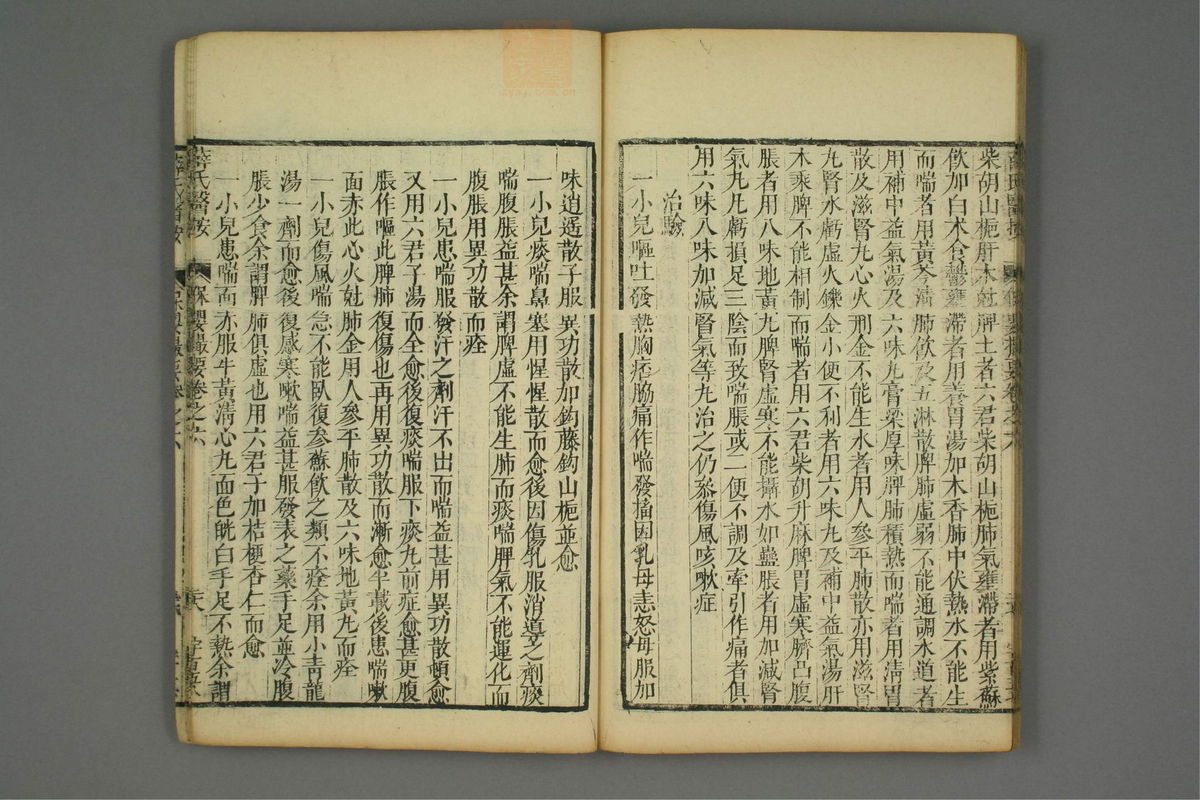 柴胡山梔肝木尅脾土者六君柴胡山梔肺氣壅滯者用紫蘇
飲加白术食鬱壅滯者用養胃湯加木香肺中伏熱水不能生
而喘者用黃芩清肺飲及五淋散脾肺虛弱不能通調水道者
用補中益氣湯及六味丸膏梁厚味脾肺積熱而喘者用清胃
散及滋腎丸心火刑金不能生水者用人參平肺散亦用滋腎
丸腎水虧虛火鑠金小便不利者用六味丸及補中益氣湯肝
木乘脾不能相制而喘者用六君柴胡升麻脾胃虛寒臍凸腹
脹者用八味地黃丸脾腎虛寒不能攝水如蠱脹者用加減腎
氣丸凡虧損足三陰而致喘脹或二便不調及牽引作痛者俱
用六味八味加減腎氣等丸治之仍叅傷風咳嗽症
治驗
一小兒嘔吐發熱胸痞脇痛作喘發搐因乳母恚怒母服加
味逍遥散子服異功散加鈎藤鈎山梔並愈
一小兒痰喘鼻塞用惺惺散而愈後因傷乳服消導之劑痰
喘腹脹益甚余謂脾虛不能生肺而痰喘脾氣不能運化而
腹脹用異功散而痊
一小兒患喘服發汗之劑汗不出而喘益甚用異功散頓愈
又用六君子湯而全愈後復痰喘服下痰丸前症愈甚更腹
脹作嘔此脾肺復傷也再用異功散而漸愈半載後患喘嗽
面赤此心火尅肺金用人參平肺散及六味地黃丸而痊
一小兒傷風喘急不能臥復參蘇飲之類不痊余用小青龍
湯一劑而愈後復感寒嗽喘益甚服發表之藥手足並冷腹
脹少食余謂脾肺俱虛也用六君子加桔梗杏仁而愈
一小兒患喘面赤服牛黃清心丸面色㿠白手足不熱余謂
薛氏醫按 保嬰撮要卷之六